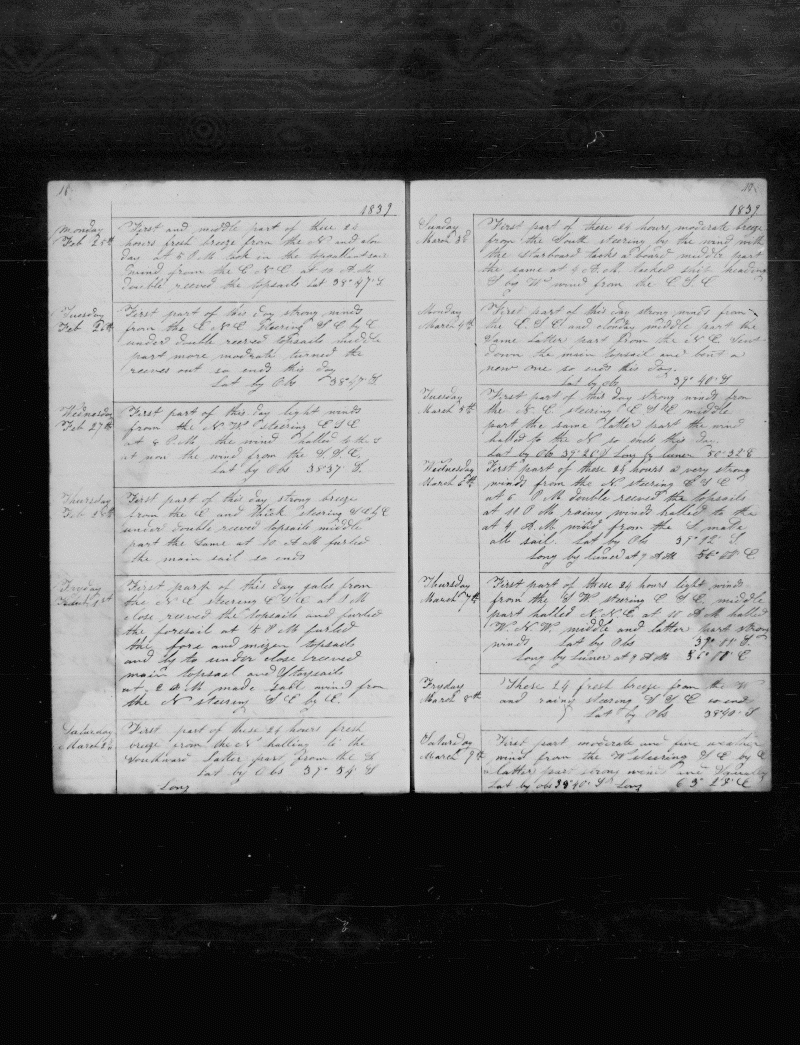 16
1839
Monday
Feb 25th
First and middle part of these 24
hours fresh breeze from the N and
Day at 5 P M took in the
wind from the E N E at 10 A M
Double reeved the topsails Lat 38°47' S
Tuesday
Feb 26th
First part of this day strong winds
from the E N E steering S E by E
under double reeved topsails middle
part more modrate turned the
reeves out so ends this day
Lat by Obs 38°47' S
Wednesday
Feb 27th
First part of this day light winds
from the N W steering E S E
at 8 P M the wind halled to the S
at noon the wind from the S S E
Lat by Obs 38°37' S
Thursday
Feb 28th
First part of this day strong breeze
from the E and thick steering
under double reeved topsails middle
part the same at 10 A M furled
the main sail so ends
Fryday
March 1st
First part of this day gales from
the N E steering E S E at P M
close reeved the topsails and furled
the foresail at P M furled
the fore and mizen topsails
and by to under close reeved
main topsail and staysails
at 2 A M made sail wind from
the N steering S E by E
Saturday
March 2d
First part of these 24 hours fresh
breeze from the N halling to the
Southward latter part from the S
Lat by Obs 37° 54' S
Long
1839
Sunday
March 3d
First part of these 24 hours moderate breeze
from the South steering by the wind with
the starboard tacks aboard middle part
the same at 9 A M tacked ship heading
S by W wind from the E S E
Monday
March 4th
First part of this day strong winds from
the E S E and clouday middle part the
same latter part from the N E Sent
down the main topsail and bent a
new one so ends this day
Lat by obs 39° 40' S
Tuesday
March 5th
First part of this day strong winds from
the N E steering E S E middle
part the same latter part the wind
halled to the N so ends this day
Lat by Obs 39°20' S Long by luner 50°32' E
Wednesday
March 6th
First part of these 24 hours a very strong
winds from the N steering E S E
at 6 P M double reeved the topsails
at 11 P M rainy winds halled to the
at 4 A M wind from the S make
all sail Lat by Obs S
Long by luner at 9 A M E
Thursday
March 7th
First part of these 24 hours light winds
from the S W steering E S E middle
part halled N N E at 10 A M halled
W N W middle and latter part strong
winds Lat by Obs S
Long by luner at 9 A M E
Fryday
March 8th
These 24 fresh breeze from the W
and rainy steering S S E so ends
Lat by Obs 38°40' S
Saturday
March 9th
First part moderate and fine weather
wind from the W steering S E by E
latter part strong winds and
Lat by obs 38°40' S Long E